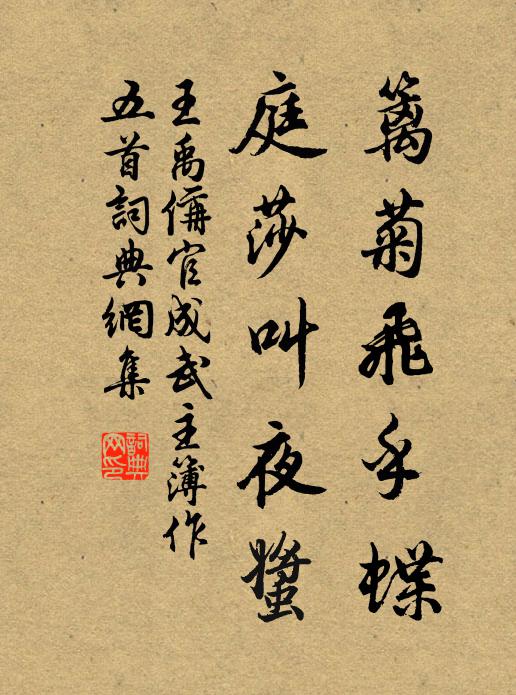 篱菊飛乎蝶
庭莎叫夜螿
王禹偁官成武主簿作
五首詞典網集
詞典
网印